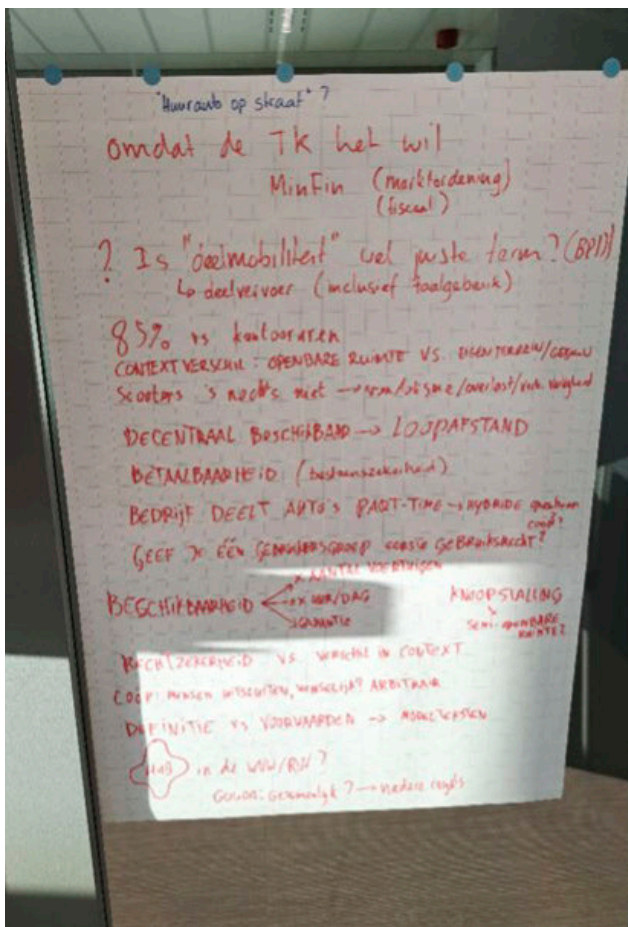 "Huurauto op straat" ?
omdat de TK het wil
MinFin (marktordening)
(fiscaal)
? Is "deelmobiliteit" wel juiste term? (BPD)
↳ deelvervoer (inclusief taalgebruik)
85% vs kantooruren
CONTEXT VERSCHIL: OPENBARE RUIMTE VS. EIGEN TERREIN/GEBOUW
Scooters 's nachts niet → /overlast/ veiligheid
DECENTRAAL BESCHIKBAAR → LOOPAFSTAND
BETAALBAARHEID (bestaanszekerheid)
BEDRIJF DEELT AUTO'S PART-TIME → HYBRIDE
GEEF ÉÉN GEBRUIKERSGROEP EERSTE GEBRUIKSRECHT?
× AANTAL VOERTUIGEN
BESCHIKBAARHEID × UUR/DAG
GARANTIE
KNOOPSTALLING
SEMI-OPENBARE RUIMTE?
RECHTZEKERHEID VS VERSCHIL IN CONTEXT
COÖP: MENSEN UITSLUITEN, WENSELIJK? ARBITRAIR
DEFINITIE VS VOORWAARDEN → MODELTEKSTEN
HUB in de WVW/RVV?
GOUDA: Gezamenlijk? → nadere regels